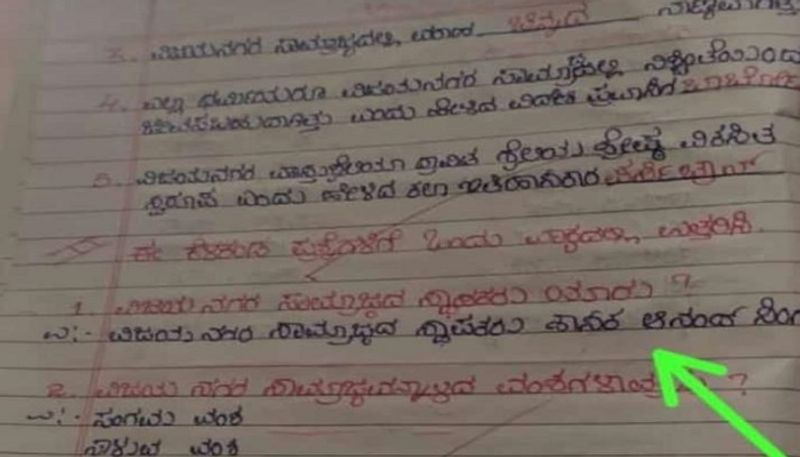 3. ವಿಜಯನಗರ ಸಾಮ್ರಾಜ್ಯದಲ್ಲಿ ವರಾಹ ಚಿನ್ನದ ನಾಣ್ಯವಾಗಿತ್ತು
4. ಎಲ್ಲಾ ಧರ್ಮೀಯರೂ ವಿಜಯನಗರ ಸಾಮ್ರಾಜ್ಯದಲ್ಲಿ ನಿಶ್ಚಿಂತೆಯಿಂದ
ಜೀವಿಸಬಹುದಾಗಿತ್ತು ಎಂದು ಹೇಳಿದ ವಿದೇಶಿ ಪ್ರವಾಸಿಗ ಬಾರ್ಬೋಸ
5. ವಿಜಯನಗರ ವಾಸ್ತುಶೈಲಿಯು ದ್ರಾವಿಡ ಶೈಲಿಯ ವಿಕಸಿತ
ಸ್ವರೂಪ ಎಂದು ಹೇಳಿದ ಕಲಾ ಇತಿಹಾಸಕಾರ ಪರ್ಸಿಬ್ರೌನ್
ಈ ಕೆಳಕಂಡ ಪ್ರಶ್ನೆಗಳಿಗೆ ಒಂದು ವಾಕ್ಯದಲ್ಲಿ ಉತ್ತರಿಸಿ.
1. ವಿಜಯನಗರ ಸಾಮ್ರಾಜ್ಯದ ಸ್ಥಾಪಕರು ಯಾರು ?
ಉ:- ವಿಜಯನಗರ ಸಾಮ್ರಾಜ್ಯದ ಸ್ಥಾಪಕರು ಕಾವೇರಿ ಆನಂದ್ ಸಿಂಗ
2. ವಿಜಯನಗರ ಸಾಮ್ರಾಜ್ಯವನ್ನಾಳಿದ ವಂಶಗಳಾವುವು ?
ಉ:- ಸಂಗಮ ವಂಶ
ಸಾಳುವ ವಂಶ